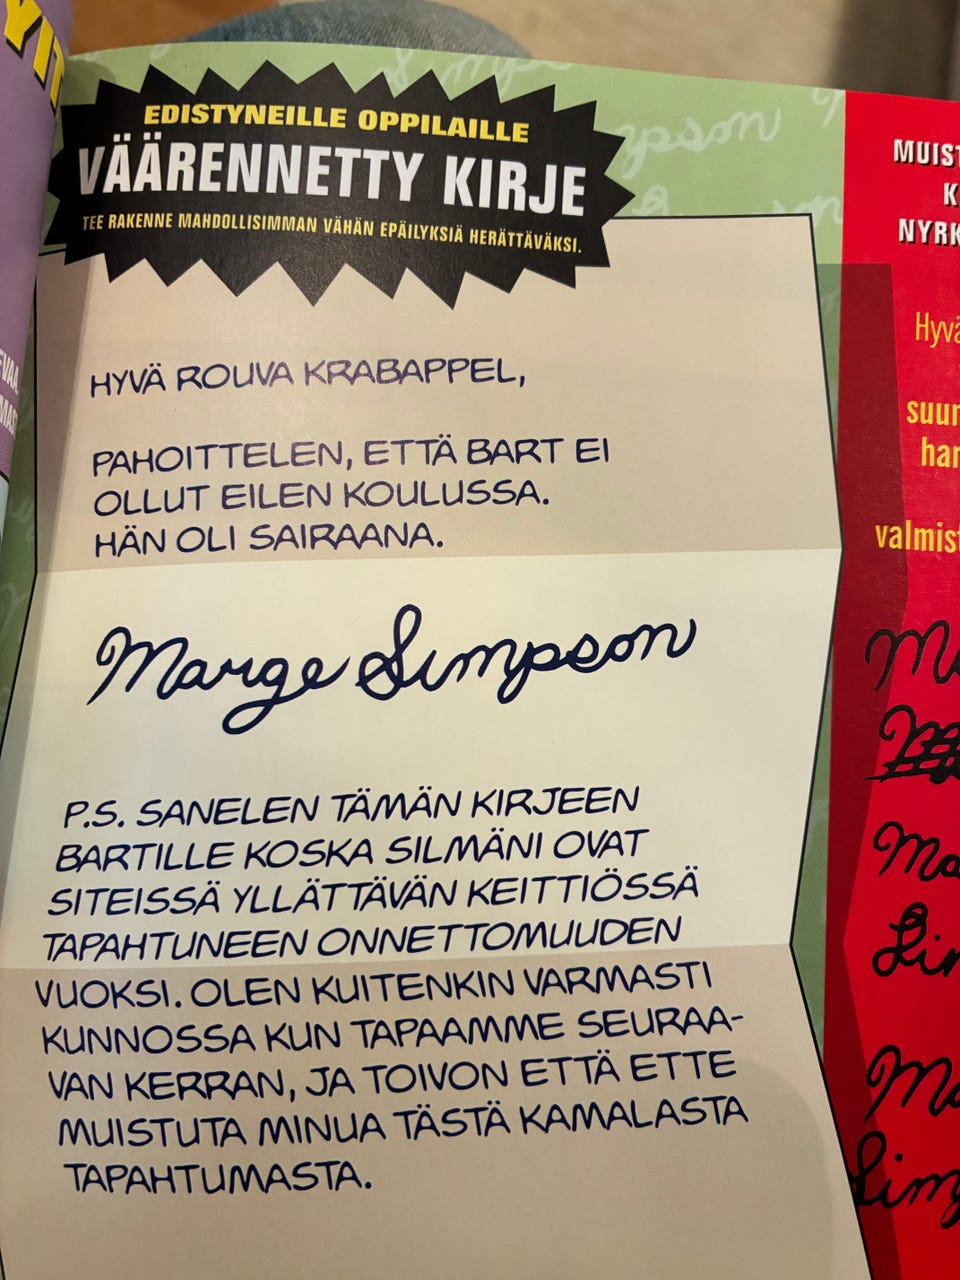 EDISTYNEILLE OPPILAILLE
VÄÄRENNETTY KIRJE
TEE RAKENNE MAHDOLLISIMMAN VÄHÄN EPÄILYKSIÄ HERÄTTÄVÄKSI.
HYVÄ ROUVA KRABAPPEL,
PAHOITTELEN, ETTÄ BART EI
OLLUT EILEN KOULUSSA.
HÄN OLI SAIRAANA.
Marge Simpson
P.S. SANELEN TÄMÄN KIRJEEN
BARTILLE KOSKA SILMÄNI OVAT
SITEISSÄ YLLÄTTÄVÄN KEITTIÖSSÄ
TAPAHTUNEEN ONNETTOMUUDEN
VUOKSI. OLEN KUITENKIN VARMASTI
KUNNOSSA KUN TAPAAMME SEURAA-
VAN KERRAN, JA TOIVON ETTÄ ETTE
MUISTUTA MINUA TÄSTÄ KAMALASTA
TAPAHTUMASTA.